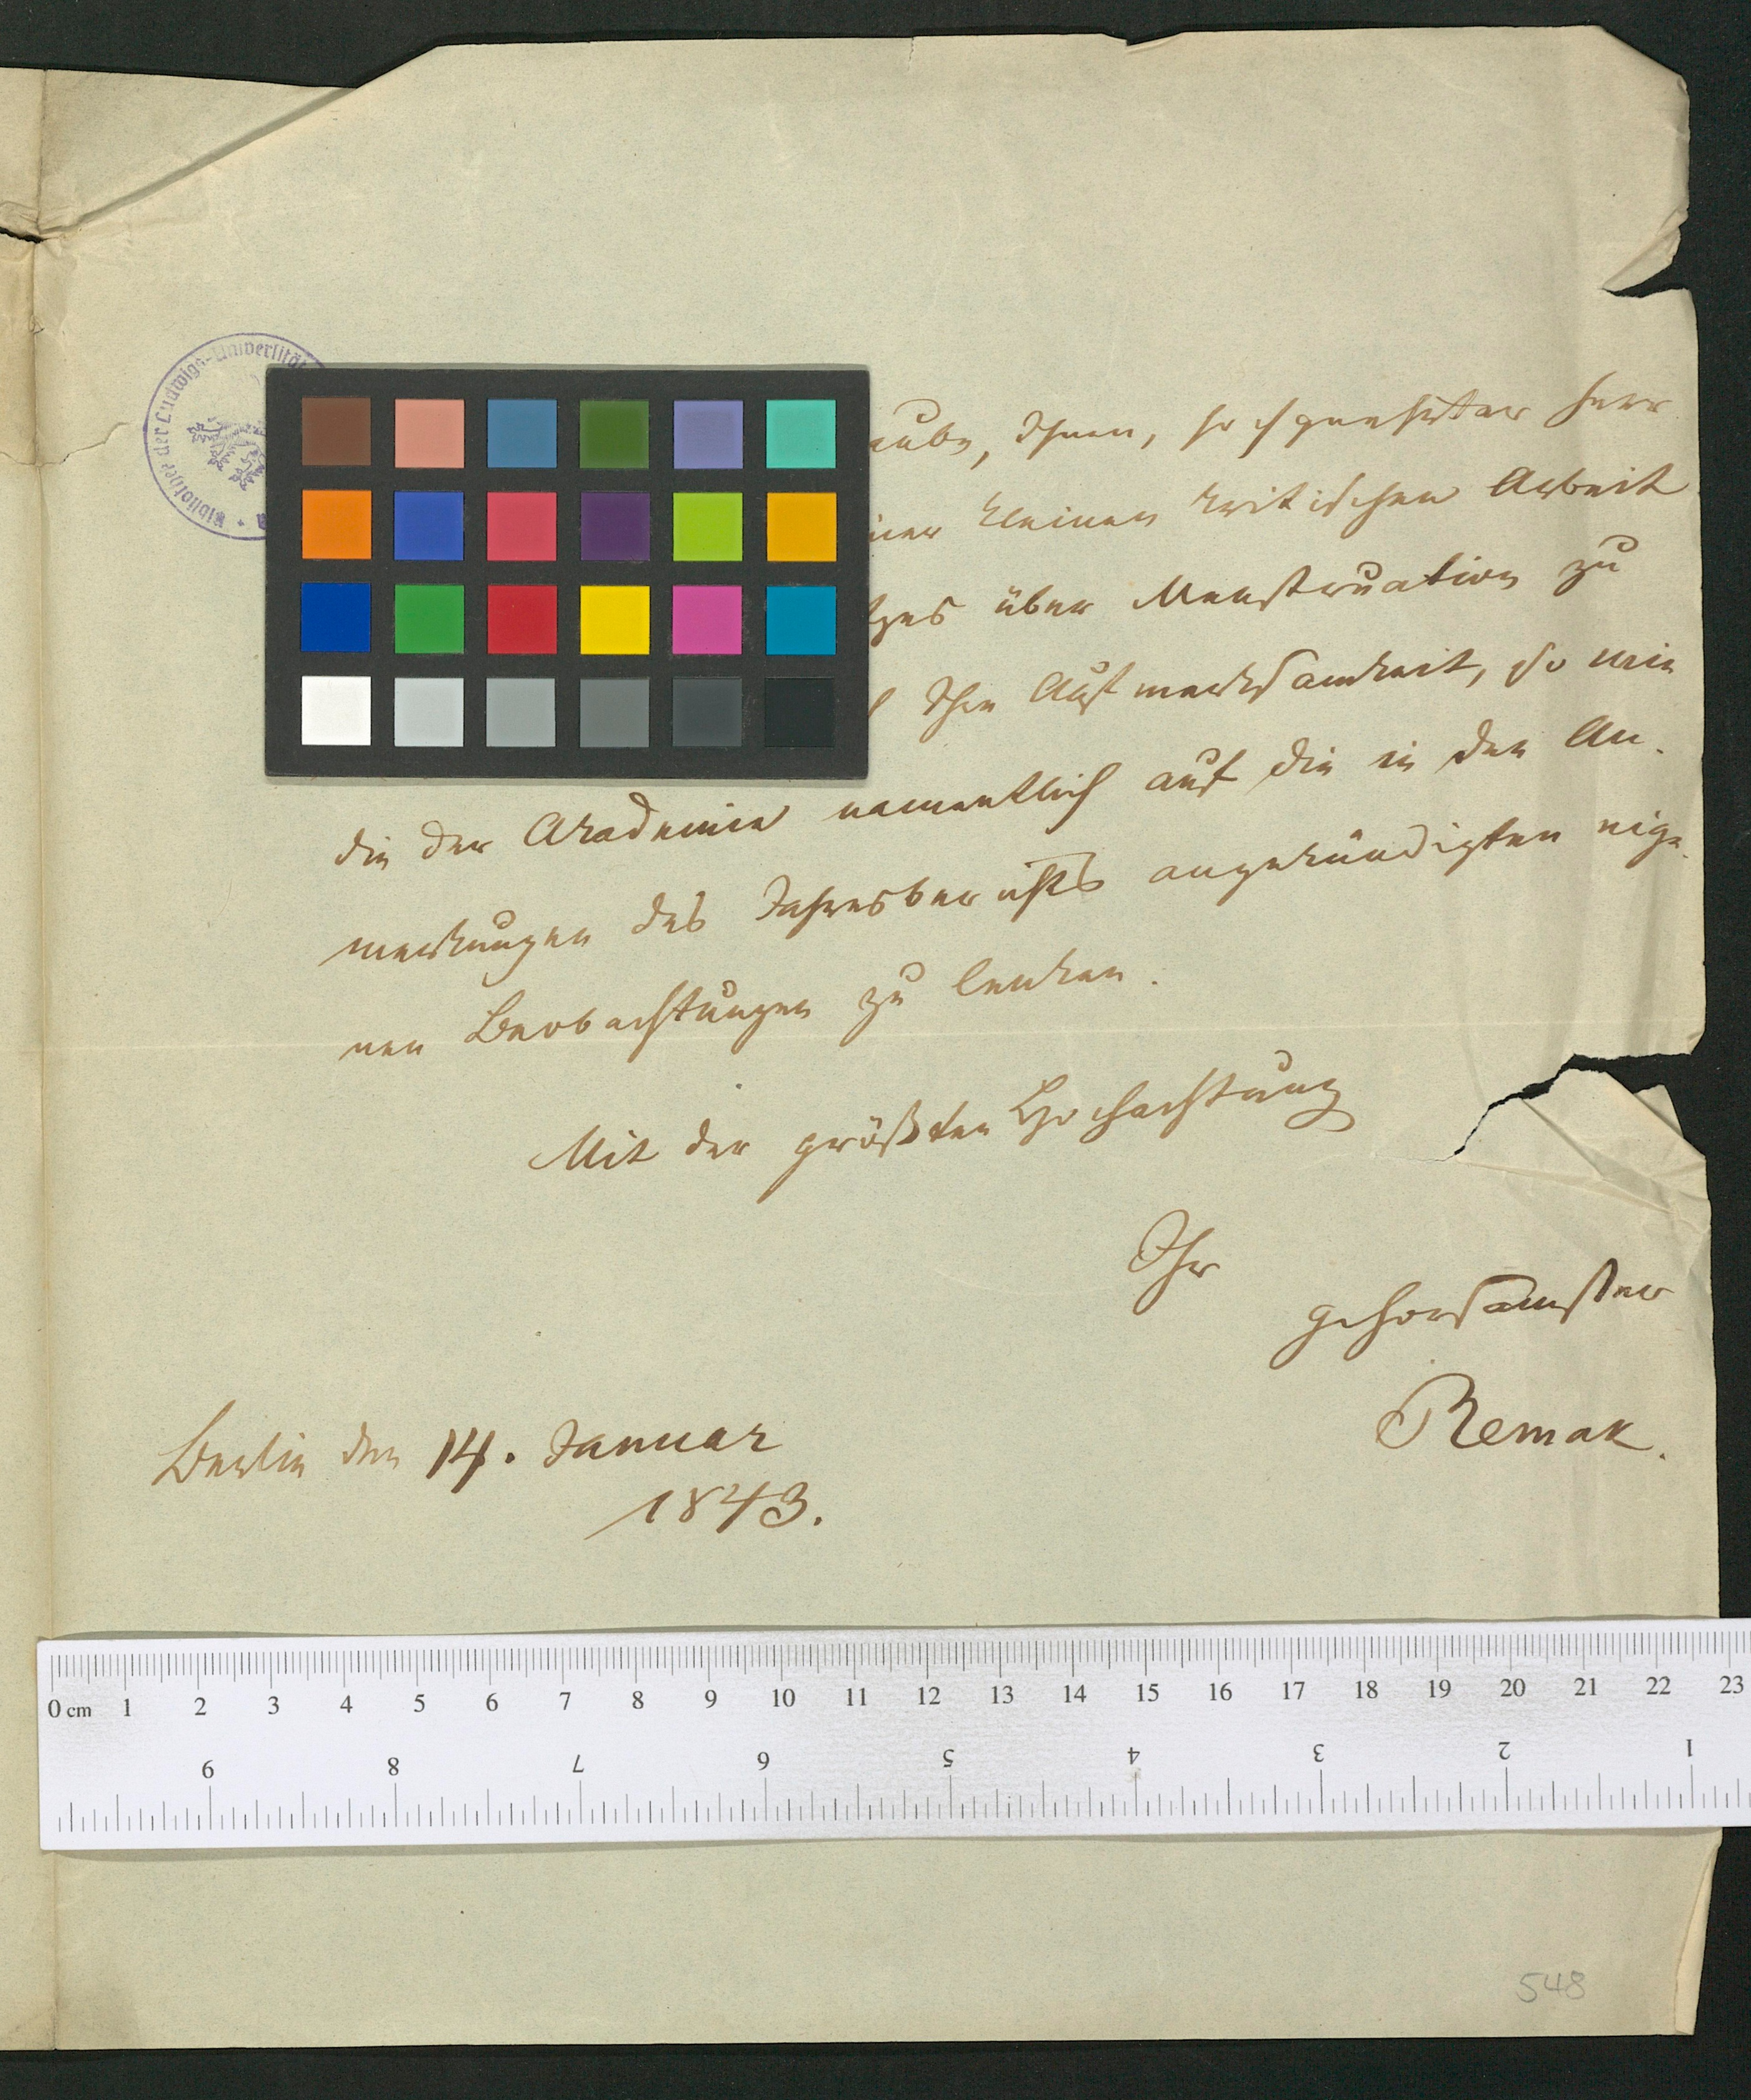 Bibliothek der Ludwigs-Universitä
aube, Ihnen, hochgeehrter Herr
iner kleinen kritischen Arbeit
tzes über Menstruation zu
Ihre Aufmerksamkeit, so wie
die der Akademie namentlich auf die in den An-
merkungen des Jahresberichts angekündigten eige-
nen Beobachtungen zu lenken.
Mit der größten Hochachtung
Ihr
gehorsamster
Remak.
Berlin den 14. Januar
1843.
0 cm 1 2 3 4 5 6 7 8 9 10 11 12 13 14 15 16 17 18 19 20 21 22 23
9 8 7 6 5 4 3 2 1
548